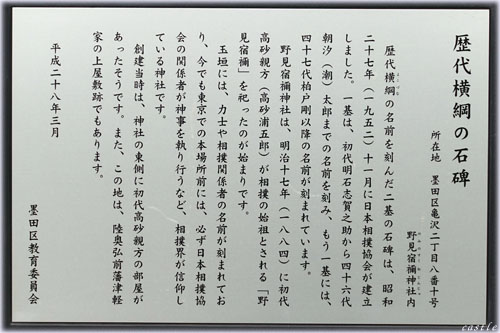 歴代横綱の石碑
所在地 墨田区亀沢二丁目八番十号
野見宿禰神社内
歴代横綱の名前を刻んだ二基の石碑は、昭和
二十七年(一九五二)十一月に日本相撲協会が建立
しました。一基は、初代明石志賀之助から四十六代
朝汐(潮)太郎までの名前を刻み、もう一基には、
四十七代柏戸剛以降の名前が刻まれています。
野見宿禰神社は、明治十七年(一八八四)に初代
高砂親方(高砂浦五郎)が相撲の始祖とされる「野
見宿禰」を祀ったのが始まりです。
玉垣には、力士や相撲関係者の名前が刻まれてお
り、今でも東京での本場所前には、必ず日本相撲協
会の関係者が神事を執り行うなど、相撲界が信仰し
ている神社です。
創建当時は、神社の東側に初代高砂親方の部屋が
あったそうです。また、この地は、陸奥弘前藩津軽
家の上屋敷跡でもあります。
平成二十八年三月
墨田区教育委員会
castle